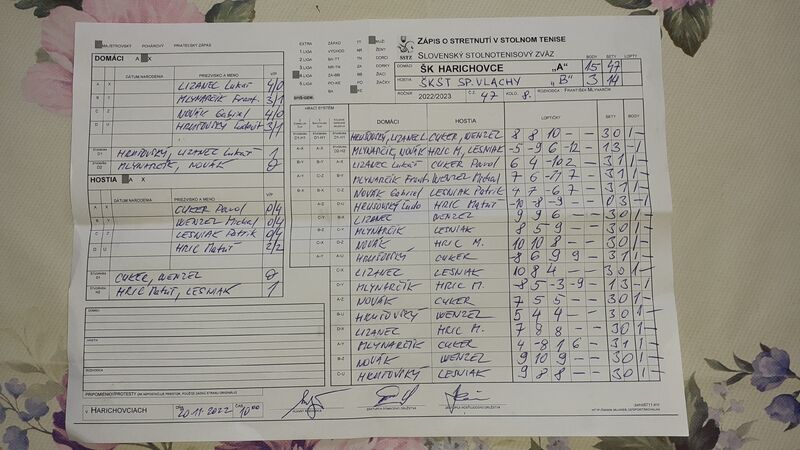 MAJSTROVSKÝ POHÁROVÝ PRIATEĽSKÝ ZÁPAS
DOMÁCI A X
DÁTUM NARODENIA PRIEZVISKO A MENO V/P
A X LIZANEC Lukáš 4/0
B Y MLYNARČÍK Frant. 3/1
C Z NOVÁK Gabriel 4/0
D U HRUŠOVSKÝ Ľudovít 3/1
HRUŠOVSKÝ, LIZANEC Lukáš 1
MLYNARČÍK, NOVÁK 0
HOSTIA A X
DÁTUM NARODENIA PRIEZVISKO A MENO V/P
CUKER Pavol 0/4
WENZEL Michal 0/4
C Z LESNIAK Patrik 0/4
D U HRIC Matúš 2/2
CUKER, WENZEL 0
HRIC Matúš, LESNIAK 1
DOMÁCI
HOSTIA
ROZHODCA
PRIPOMIENKY/PROTESTY
V HARICHOVCIACH DŇA 20.11.2022 ČAS 10 00
EXTRA ZÁPAD TT MUŽI
1 LIGA VÝCHOD
2 LIGA BA-TT TN DORKY
3 LIGA NR-TN ZA DORCI
4 LIGA ZA-BB BB ŽIACI
5 LIGA PO-KE
ZÁPIS O STRETNUTÍ V STOLNOM TENISE
SSTZ SLOVENSKÝ STOLNOTENISOVÝ ZVÄZ
BODY SETY LOPTY
DOMÁCI ŠK HARICHOVCE „A" 15 47
HOSTIA ŠKŠT SP. VLACHY „B" 3 14
ROČNÍK 2022/2023 Č.Z 47 KOLO 8. ROZHODCA FRANTIŠEK MLYNARČÍK
HRACÍ SYSTÉM
DOMÁCI HOSTIA LOPTIČKY SETY BODY
HRUŠOVSKÝ, LIZANEC CUKER, WENZEL 8 8 10 – – 3 0 1 –
MLYNARČÍK, NOVÁK HRIC M, LESNIAK -5 -9 6 -12 – 1 3 – 1
LIZANEC Lukáš CUKER Pavol 6 4 -10 2 – 3 1 1 –
MLYNARČÍK Frant. WENZEL Michal 7 6 -11 7 – 3 1 1 –
NOVÁK Gabriel LESNIAK Patrik 4 7 -6 7 – 3 1 1 –
HRUŠOVSKÝ Ľudo HRIC Matúš -10 -8 -9 – – 0 3 – 1
LIZANEC WENZEL 9 9 6 – – 3 0 1 –
MLYNARČÍK LESNIAK 8 5 9 – – 3 0 1 –
NOVÁK HRIC M. 10 10 8 – – 3 0 1 –
HRUŠOVSKÝ CUKER -8 6 9 9 – 3 1 1 –
LIZANEC LESNIAK 10 8 4 – – 3 0 1 –
MLYNARČÍK HRIC M. -8 5 -3 -9 – 1 3 – 1
NOVÁK CUKER 7 5 5 – – 3 0 1 –
HRUŠOVSKÝ WENZEL 5 4 4 – – 3 0 1 –
LIZANEC HRIC M. 7 8 8 – – 3 0 1 –
MLYNARČÍK CUKER 4 -8 1 6 – 3 1 1 –
NOVÁK WENZEL 9 10 9 – – 3 0 1 –
HRUŠOVSKÝ LESNIAK 9 8 8 – – 3 0 1 –